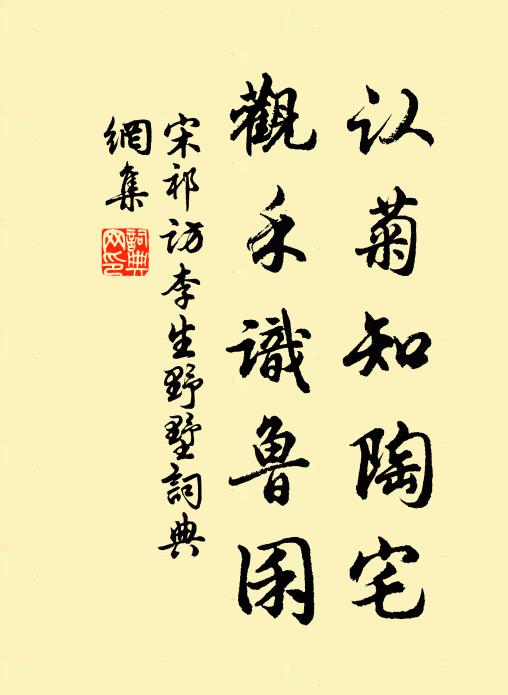 认菊知陶宅
觀禾識魯囷
宋祁访李生野墅詞典
網集
詞典
网印